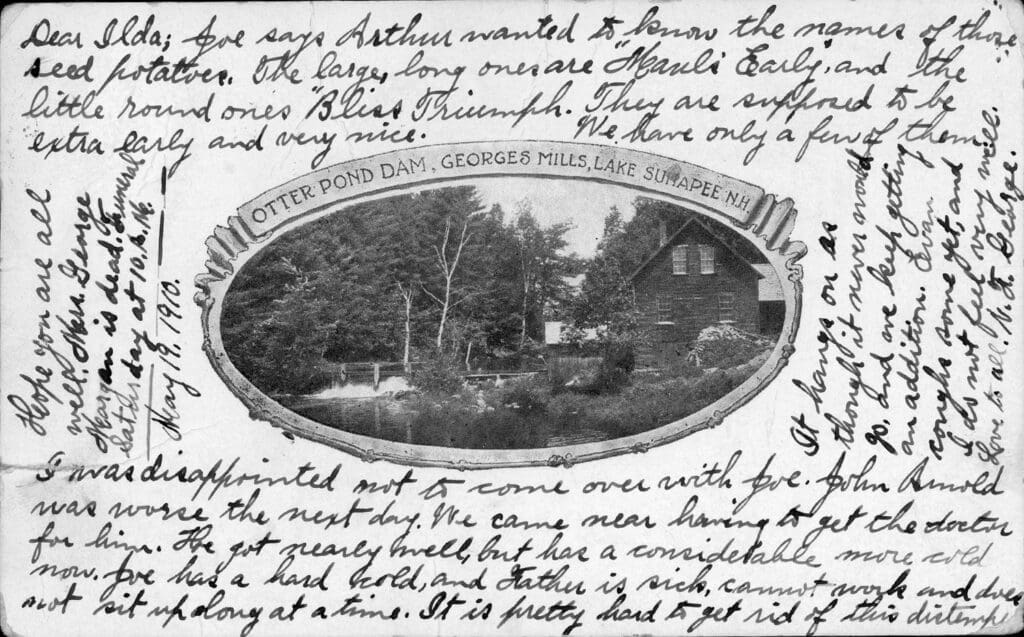 Dear Ilda; Joe says Arthur wanted to know the names of those
seed potatoes. The large, long ones are "Maul's Early", and the
little round ones "Bliss Triumph. They are supposed to be
extra early and very nice. We have only a few of them.
OTTER POND DAM, GEORGES MILLS, LAKE SUNAPEE N.H.
I was disappointed not to come over with Joe. John Arnold
was worse the next day. We came near having to get the doctor
for him. He got nearly well, but has a considerable more cold
now. Joe has a hard cold, and Father is sick, cannot work and does
not sit up long at a time. It is pretty hard to get rid of this distemper
It hangs on as
though it never would
go, and we keep getting
an addition. Evan
coughs some yet, and
I do not feel very well.
Love to all. N. A. George.
Hope you are all
well. Mrs. George
Morgan is dead. Funeral
Saturday at 10.
May 19, 1910.